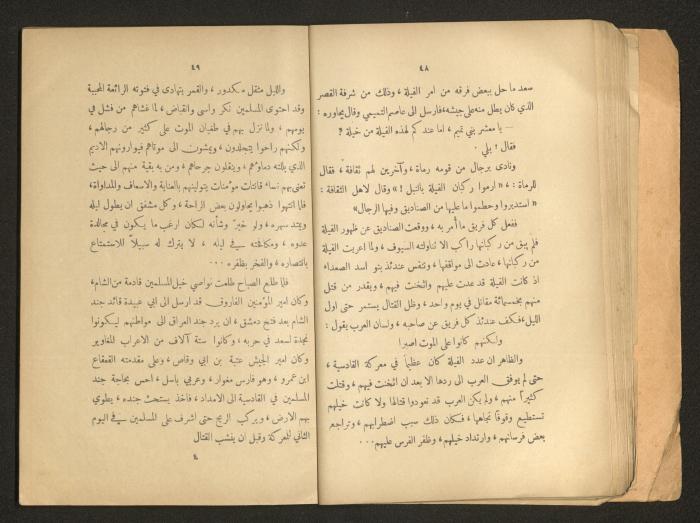 ٤٨
سعد ما حل ببعض فرقه من امر الفيلة ، وذلك من شرفة القصر
الذي كان يطل منه على جيشه ، فارسل الى عاصم التميمي وقال يحاوره :
— يا معشر بني تميم ، اما عندكم لهذه الفيلة من حيلة ؟
فقال : بلى .
ونادى برجال من قومه رماة ، وآخرين لهم ثقافة ، فقال
للرماة : « ارموا ركبان الفيلة بالنبل ! » وقال لاهل الثقافة :
« استدبروا وحطموا ما عليها من الصناديق وفيها الرجال »
ففعل كل فريق ما أمر به ، ووقعت الصناديق عن ظهور الفيلة
فلم يبق من ركبانها راكب الا تناولته السيوف ، ولما اعريت الفيلة
من ركبانها ، عادت الى مواقفها ، وتنفس عندئذ بنو اسد الصعداء
اذ كانت الفيلة قد عدت عليهم واثخنت فيهم ، وبقدر من قتل
منهم بخمسمائة مقاتل في يوم واحد ، وظل القتال يستمر حتى اول
الليل ، فكف عندئذ كل فريق عن صاحبه ، ولسان العرب يقول :
ولكنهم كانوا على الموت اصبرا
والظاهر ان عدد الفيلة كان عظيماً في معركة القادسية ،
حتى لم يوفق العرب الى ردها الا بعد ان اثخنت فيهم ، وقتلت
كثيراً منهم ، ولم يكن العرب قد تعودوا قتالها ولا كانت خيلهم
تستطيع وقوفاً تجاهها ، فكان ذلك سبب اضطرابهم ، وتراجع
بعض فرسانهم ، وارتداد خيلهم ، وظفر الفرس عليهم ...
٤٩
والليل مثقل مكدور ، والقمر يتهادى في فتوته الرائعة المحببة
وقد احتوى المسلمين نكر واسى وانقباض ، لما غشاهم من فشل في
يومهم ، ولما نزل بهم في طغيان الموت على كثير من رجالهم ،
ولكنهم راحوا يتجلدون ، ويمشون الى موتاهم فيوارونهم الاديم
الذي بللته دماؤهم ، وينقلون جرحاهم ، ومن به بقية منهم الى حيث
تعنى بهم نساء قانتات مؤمنات يتولينهم بالعناية والاسعاف والمداواة ،
فلما انتهوا ذهبوا يحاولون بعض الراحة ، وكل مشفق ان يطول ليله
ويمتد سهره ، ولو خير وشأنه لكان ارغب ما يكون في مجالدة
عدوه ، ومكافحته في ليله ، لا يترك له سبيلاً للاستمتاع
بانتصاره ، والفخر بظفره ...
فلما طلع الصباح طلعت نواصي خيل المسلمين قادمة من الشام ،
وكان امير المؤمنين الفاروق قد ارسل الى ابي عبيدة قائد جند
الشام بعد فتح دمشق ، ان يرد جند العراق الى مواطنهم ليكونوا
نجدة لسعد في حربه ، وكانوا ستة آلاف من الاعراب المغاوير
وكان امير الجيش عتبة بن ابي وقاص ، وعلى مقدمته القعقاع
ابن عمرو ، وهو فارس مغوار ، وعربي باسل ، احس بحاجة جند
المسلمين في القادسية الى الامداد ، فاخذ يستحث جنده ، يطوي
بهم الارض ، ويركب الريح حتى اشرف على المسلمين في اليوم
الثاني للمعركة وقبل ان ينشب القتال
٤